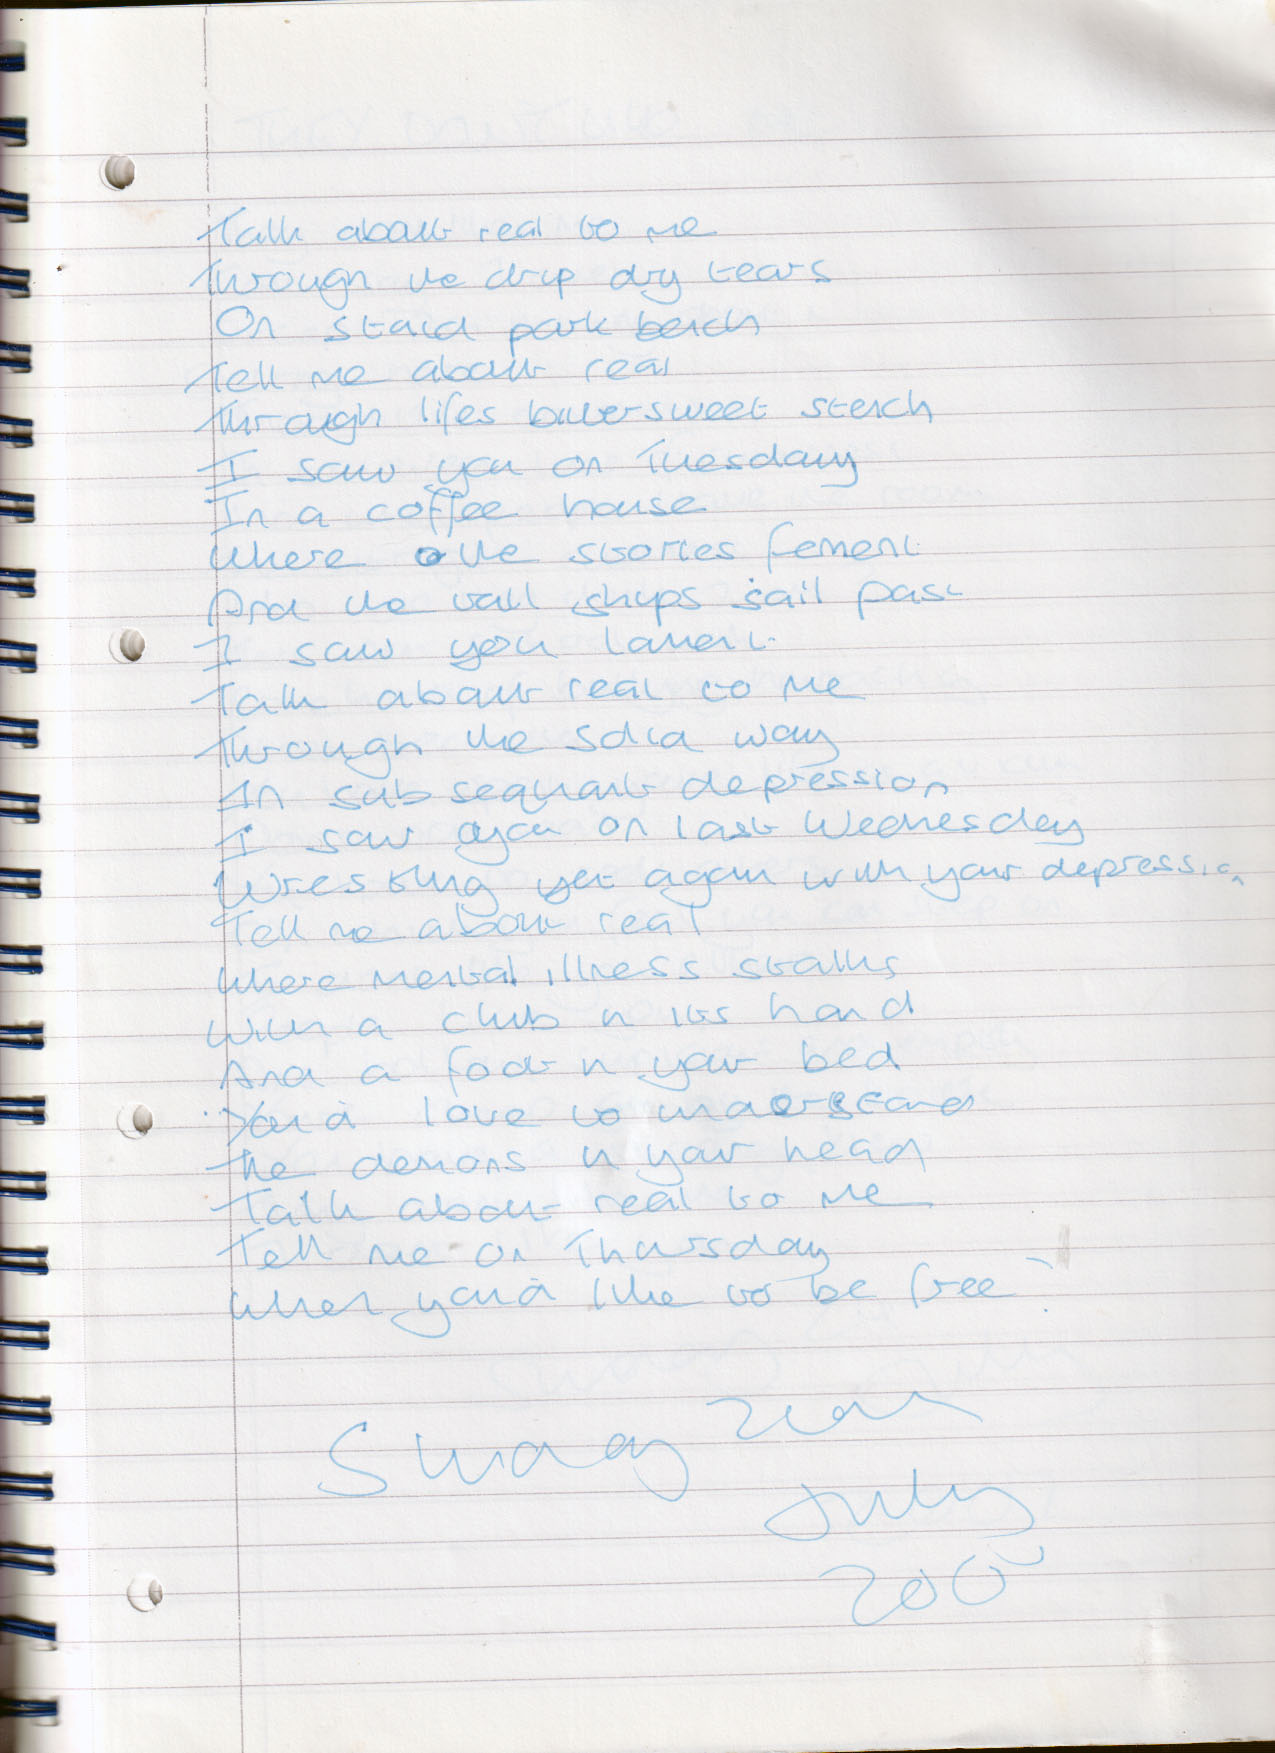 Talk about real to me
Through the drip dry tears
On staid park bench
Tell me about real
Through lifes bittersweet stench
I saw you on Tuesday
In a coffee house
Where the stories fement
And the tall ships sail past
I saw you lament
Talk about real to me
Through the solid way
In subsequant depression
I saw you on last Wednesday
Wrestling yet again with your depression
Tell me about real
Where mental illness stalks
With a club in its hand
And a foot in your bed
You'd love to understand
The demons in your head
Talk about real to me
Tell me on Thursday
When you'd like to be free
Sunday
July